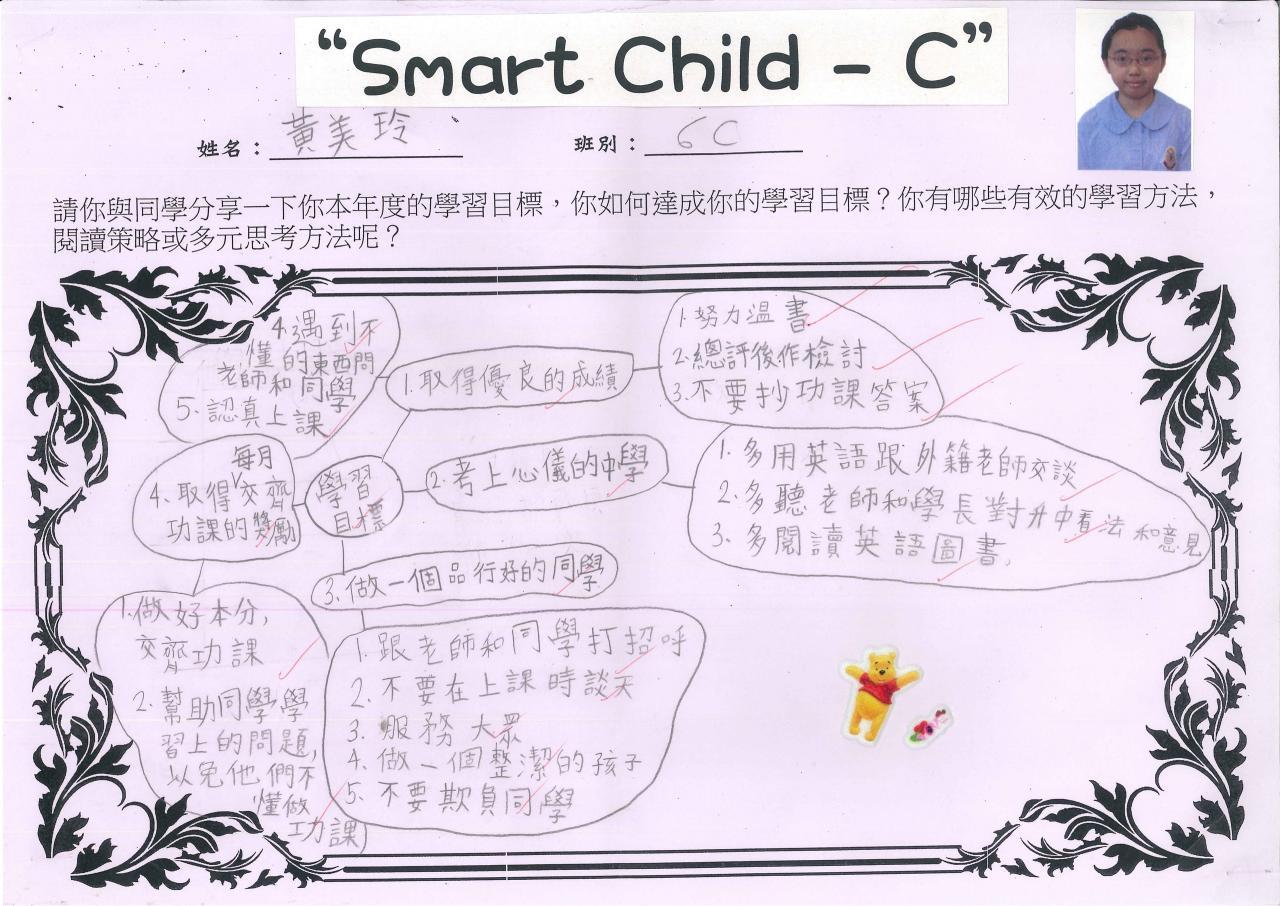 “Smart Child - C”
姓名：黃美玲
班別：6C
請你與同學分享一下你本年度的學習目標，你如何達成你的學習目標？你有哪些有效的學習方法，
閱讀策略或多元思考方法呢？
學習
目標
1. 取得優良的成績
1. 努力溫書
2. 總評後作檢討
3. 不要抄功課答案
4. 遇到不
懂的東西問
老師和同學
5. 認真上課
2. 考上心儀的中學
1. 多用英語跟外籍老師交談
2. 多聽老師和學長對升中看法和意見
3. 多閱讀英語圖書,
3. 做一個品行好的同學
1. 跟老師和同學打招呼
2. 不要在上課時談天
3. 服務大眾
4. 做一個整潔的孩子
5. 不要欺負同學
每月
4. 取得交齊
功課的獎勵
1. 做好本分,
交齊功課
2. 幫助同學學
習上的問題,
以免他們不
懂做
功課